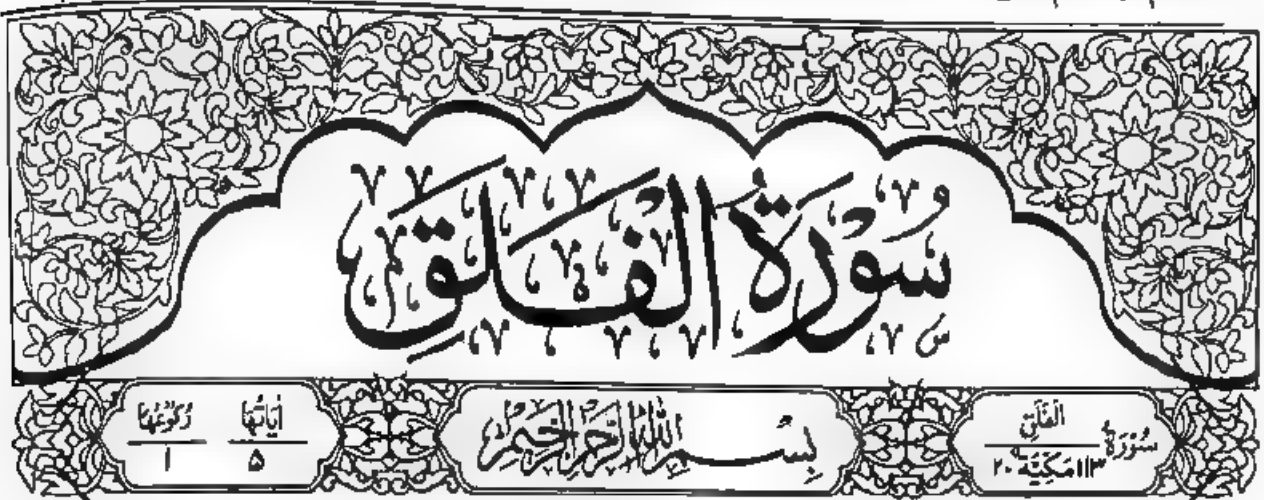 سُوْرَةُ الْفَلَقِ
سُوْرَةُ الْفَلَقِ
١١٣ مَكِّيَّةٌ ٢٠
بِسْمِ اللّٰهِ الرَّحْمٰنِ الرَّحِيْمِ
اٰيَاتُهَا ٥
رُكُوْعُهَا ١